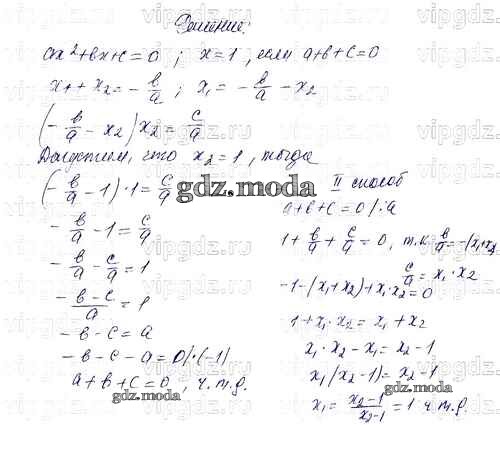 Решение:
ax²+bx+c=0 ; x=1, если a+b+c=0
x₁+x₂=-b/a ; x₁=-b/a-x₂
(-b/a-x₂)x₂=c/a
Допустим, что x₂=1, тогда
(-b/a-1)·1=c/a
-b/a-1=c/a
-b/a-c/a=1
(-b-c)/a=1
-b-c=a
-b-c-a=0/·(-1)
a+b+c=0, ч.т.д.
II способ
a+b+c=0/:a
1+b/a+c/a=0, т.к. b/a=-(x₁+x₂
c/a=x₁·x₂
-1-(x₁+x₂)+x₁·x₂=0
1+x₁·x₂=x₁+x₂
x₁·x₂-x₁=x₂-1
x₁(x₂-1)=x₂-1
x₁=(x₂-1)/(x₂-1)=1 ч.т.д.
gdz.moda
gdz.moda
gdz.moda
vipgdz.ru